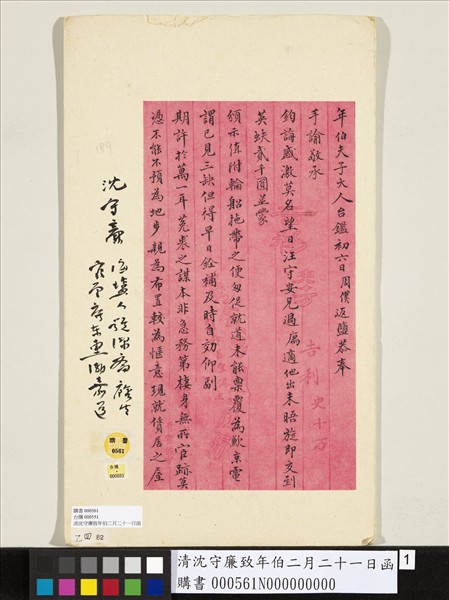 年伯夫子大人台鑑初六日周僕返鹽恭奉
手諭敬承
鈞誨感激莫名翌日汪守安見過屬適他出未晤旋即交到
英蚨貳千圓並蒙
頒示偉附輪船拖帶之便匆促就道未能稟覆為歉京電
謂已見三缺但得早日銓補及時自効仰副
期許於萬一耳菟裘之謀本非急務第棲身無所官跡莫
憑不能不預為地步親為布置較為愜意現就賃居之屋
吉利
沈守廉
海鹽人
購書
0561
台購
000551
購書 000561
台購 000551
清沈守廉致年伯二月二十一日函
乙四 82
清沈守廉致年伯二月二十一日函
購書 000561N000000000
1